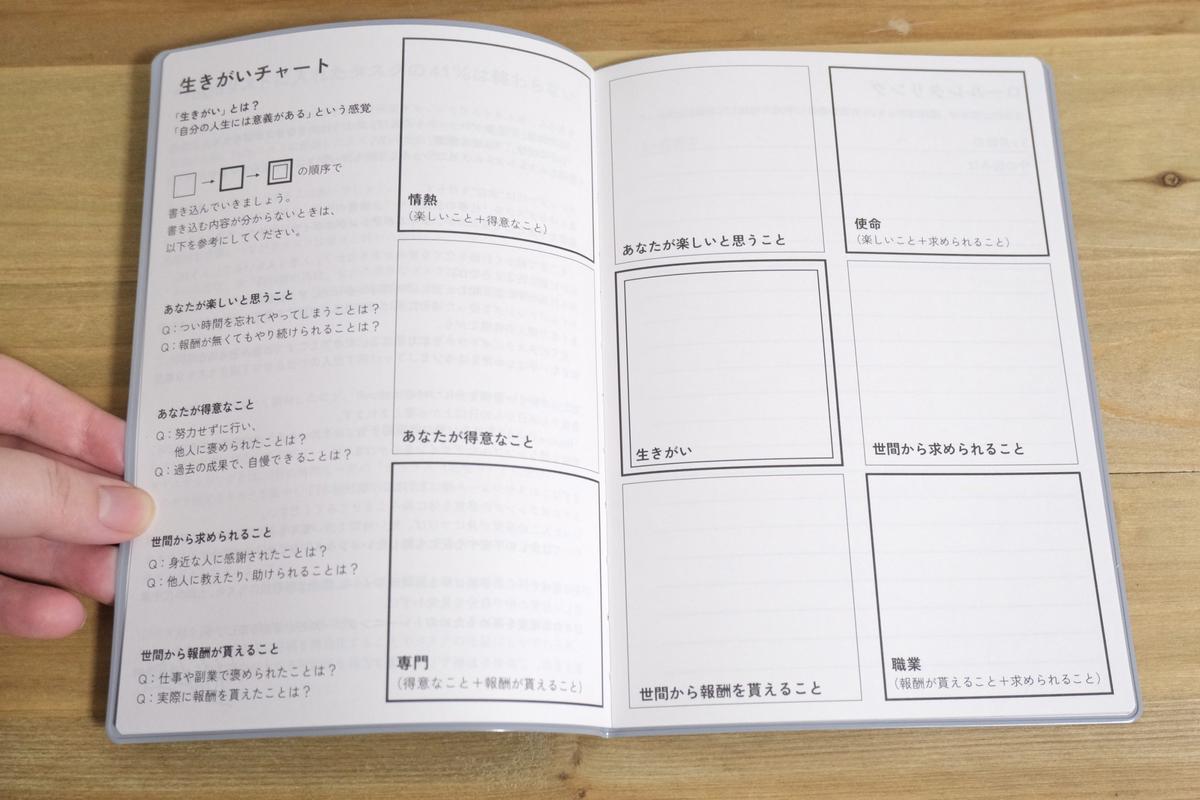 生きがいチャート
「生きがい」とは？
「自分の人生には意義がある」という感覚
→ → の順序で
書き込んでいきましょう。
書き込む内容が分からないときは、
以下を参考にしてください。
あなたが楽しいと思うこと
Q：つい時間を忘れてやってしまうことは？
Q：報酬が無くてもやり続けられることは？
あなたが得意なこと
Q：努力せずに行い、
他人に褒められたことは？
Q：過去の成果で、自慢できることは？
世間から求められること
Q：身近な人に感謝されたことは？
Q：他人に教えたり、助けられることは？
世間から報酬が貰えること
Q：仕事や副業で褒められたことは？
Q：実際に報酬を貰えたことは？
情熱
（楽しいこと＋得意なこと）
あなたが得意なこと
専門
（得意なこと＋報酬が貰えること）
あなたが楽しいと思うこと
使命
（楽しいこと＋求められること）
生きがい
世間から求められること
世間から報酬を貰えること
職業
（報酬が貰えること＋求められること）